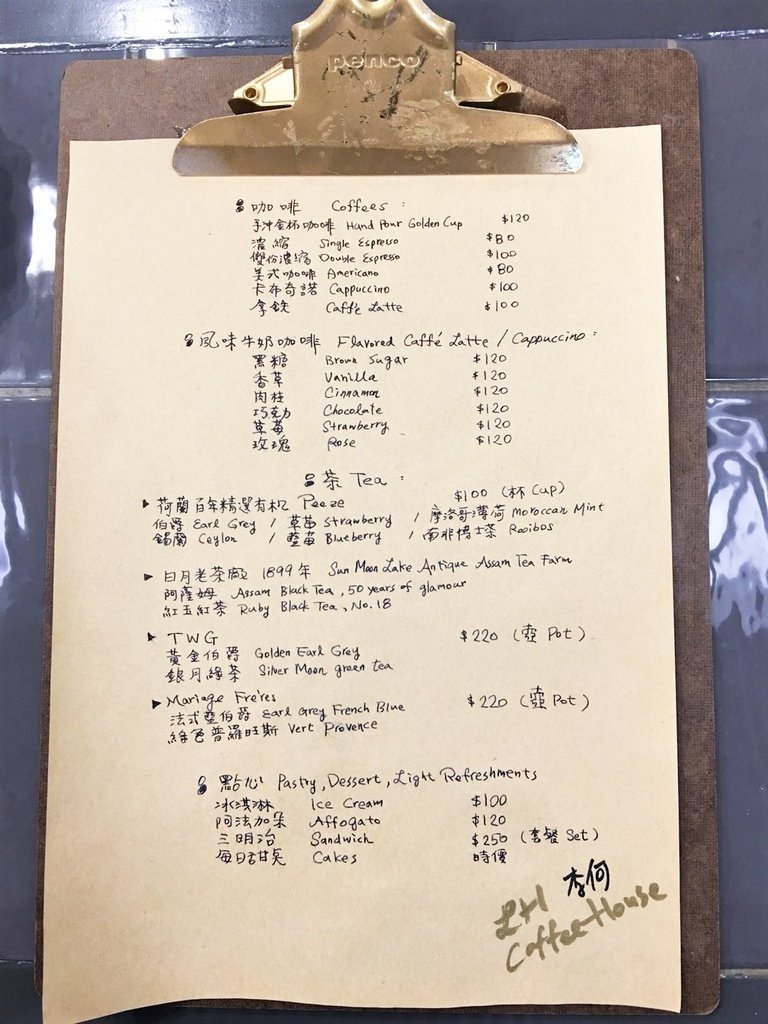 penco
咖啡 Coffees :
手沖金杯咖啡 Hand Pour Golden Cup $120
濃縮 Single Espresso $80
雙份濃縮 Double Espresso $100
美式咖啡 Americano $80
卡布奇諾 Cappuccino $100
拿鐵 Caffé Latte $100
風味牛奶咖啡 Flavored Caffé Latte / Cappuccino :
黑糖 Brown Sugar $120
香草 Vanilla $120
肉桂 Cinnamon $120
巧克力 Chocolate $120
草莓 Strawberry $120
玫瑰 Rose $120
茶 Tea :
▶ 荷蘭百年精選有机 Peeze $100 (杯 Cup)
伯爵 Earl Grey / 草莓 Strawberry / 摩洛哥薄荷 Moroccan Mint
錫蘭 Ceylon / 藍莓 Blueberry / 南非博士茶 Rooibos
▶ 日月老茶廠 1899年 Sun Moon Lake Antique Assam Tea Farm
阿薩姆 Assam Black Tea, 50 years of glamour
紅玉紅茶 Ruby Black Tea, No.18
▶ TWG $220 (壺 Pot)
黃金伯爵 Golden Earl Grey
銀月綠茶 Silver Moon green tea
▶ Mariage Frères $220 (壺 Pot)
法式藍伯爵 Earl Grey French Blue
綠色普羅旺斯 Vert Provence
點心 Pastry, Dessert, Light Refreshments
冰淇淋 Ice Cream $100
阿法加朵 Affogato $120
三明治 Sandwich $250 (套餐 Set)
每日甜點 Cakes 時價
李何
L+1
Coffee House